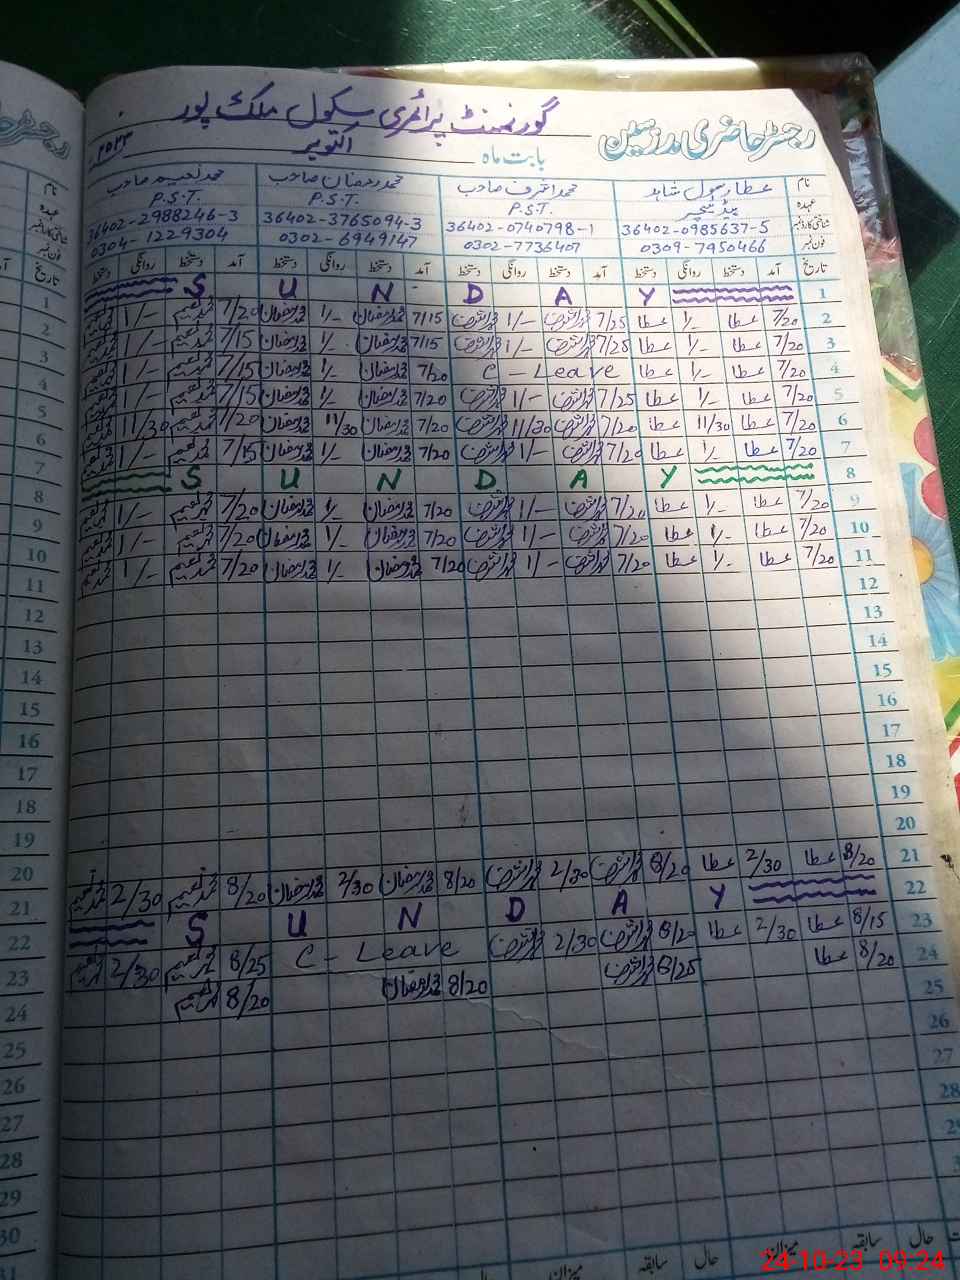 گورنمنٹ پرائمری سکول ملک پور
رجسٹر حاضری مدرسین
بابت ماہ اکتوبر ۲۰۲۳ء
نام عطا رسول شاہد محمد اشرف صاحب محمد رمضان صاحب محمد نعیم صاحب
عہدہ ہیڈ ٹیچر P.S.T. P.S.T. P.S.T.
شناختی کارڈ نمبر 36402-0985637-5 36402-0740798-1 36402-3765094-3 36402-2988246-3
فون نمبر 0309-7950466 0302-7736407 0302-6949147 0304-1229304
تاریخ آمد دستخط روانگی دستخط آمد دستخط روانگی دستخط آمد دستخط روانگی دستخط آمد دستخط روانگی دستخط
1 S U N D A Y
2 7/20 عطا 1/- عطا 7/25 محمد اشرف 1/- محمد اشرف 7/15 محمد رمضان 1/- محمد رمضان 7/20 محمد نعیم 1/- محمد نعیم
3 7/20 عطا 1/- عطا 7/25 محمد اشرف 1/- محمد اشرف 7/15 محمد رمضان 1/- محمد رمضان 7/15 محمد نعیم 1/- محمد نعیم
4 7/20 عطا 1/- عطا C - Leave 7/20 محمد رمضان 1/- محمد رمضان 7/15 محمد نعیم 1/- محمد نعیم
5 7/20 عطا 1/- عطا 7/25 محمد اشرف 1/- محمد اشرف 7/20 محمد رمضان 1/- محمد رمضان 7/15 محمد نعیم 1/- محمد نعیم
6 7/20 عطا 11/30 عطا 7/20 محمد اشرف 11/30 محمد اشرف 7/20 محمد رمضان 11/30 محمد رمضان 7/20 محمد نعیم 11/30 محمد نعیم
7 7/20 عطا 1/- عطا 7/20 محمد اشرف 1/- محمد اشرف 7/20 محمد رمضان 1/- محمد رمضان 7/15 محمد نعیم 1/- محمد نعیم
8 S U N D A Y
9 7/20 عطا 1/- عطا 7/20 محمد اشرف 1/- محمد اشرف 7/20 محمد رمضان 1/- محمد رمضان 7/20 محمد نعیم 1/- محمد نعیم
10 7/20 عطا 1/- عطا 7/20 محمد اشرف 1/- محمد اشرف 7/20 محمد رمضان 1/- محمد رمضان 7/20 محمد نعیم 1/- محمد نعیم
11 7/20 عطا 1/- عطا 7/20 محمد اشرف 1/- محمد اشرف 7/20 محمد رمضان 1/- محمد رمضان 7/20 محمد نعیم 1/- محمد نعیم
12
13
14
15
16
17
18
19
20
21 8/20 عطا 2/30 عطا 8/20 محمد اشرف 2/30 محمد اشرف 8/20 محمد رمضان 2/30 محمد رمضان 8/20 محمد نعیم 2/30 محمد نعیم
22 S U N D A Y
23 8/15 عطا 2/30 عطا 8/20 محمد اشرف 2/30 محمد اشرف C - Leave 8/25 محمد نعیم 2/30 محمد نعیم
24 8/20 عطا 8/25 محمد اشرف 8/20 محمد رمضان 8/20 محمد نعیم
25
26
27
28
حال سابقہ میزان حال سابقہ میزان
24-10-23 09:24